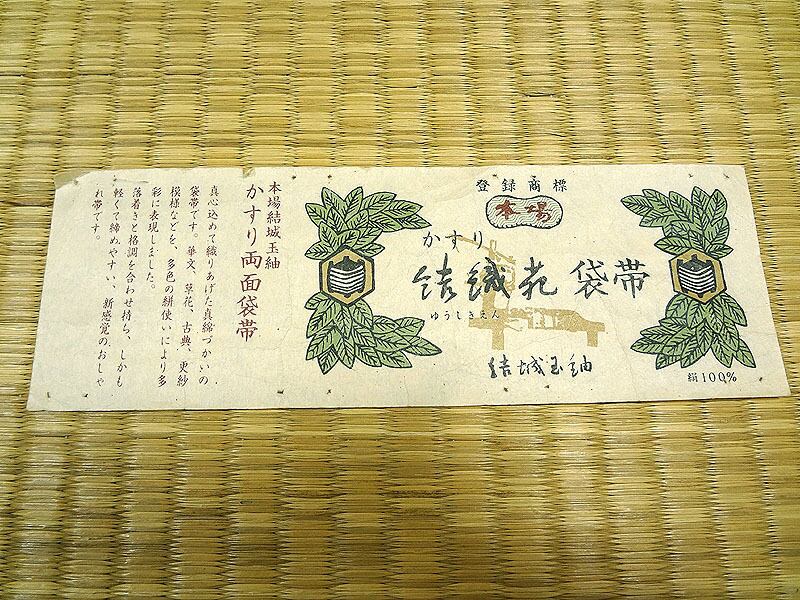 登録商標
本場
かすり
結織苑 袋帯
ゆうしきえん
結城玉紬
絹100%
本場結城玉紬
かすり両面袋帯
真心込めて織りあげた真綿づかいの
袋帯です。華文、草花、古典、更紗
模様などを、多色の絣使いにより多
彩に表現しました。
落着きと格調を合わせ持ち、しかも
軽くて締めやすい、新感覚のおしゃ
れ帯です。